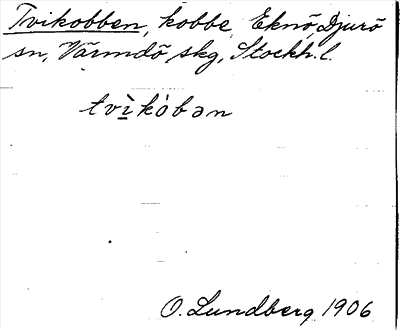 Tvikobben, kobbe, Eknö, Djurö
sn, Värmdö skg, Stockh. l.
tvìkòbən
O. Lundberg 1906